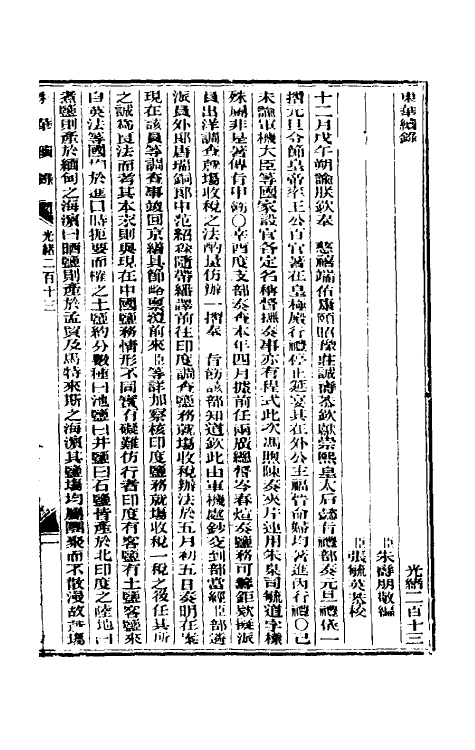 東華續錄
光緒二百十三
臣朱壽朋敬編
臣張毓英恭校
十二月戊午朔諭朕欽奉 慈禧端佑康頤昭豫莊誠壽恭欽獻崇熙皇太后懿旨禮部奏元旦禮依一
摺元旦令節皇帝率王公百官著在皇極殿行禮停止筵宴其在外公主福晉命婦均著進內行禮〇己
未諭軍機大臣等國家設官各定名稱督撫奏事亦有程式此次馮煦陳奏夾片連用朱臬司毓道字樣
殊屬非是著傳旨申飭〇辛酉度支部奏查本年四月據前任兩廣總督岑春煊奏鹽務可籌鉅款擬派
員出洋調查就場收稅之法酌量仿辦一摺奉 旨飭該部知道欽此由軍機處鈔交到部當經臣部遴
派員外郎唐瑞銅郎中范紹森隨帶繙譯前往印度調查鹽務就場收稅辦法於五月初五日奏明在案
現在該員等調查事竣回京繕具節略稟覆前來臣等詳加察核印度鹽務就場收稅一稅之後任其所
之誠為良法而若其本末則與現在中國鹽務情形不同實有礙難仿行者印度有客鹽有土鹽客鹽來
自英法等國於進口時扼要而榷之土鹽約分數種曰池鹽曰井鹽曰石鹽皆產於北印度之陸地曰
煮鹽則產於緬甸之海濱曰晒鹽則產於孟買及馬特來斯之海濱其鹽場均團聚而不散漫故產場
東華續錄 光緒二百十三